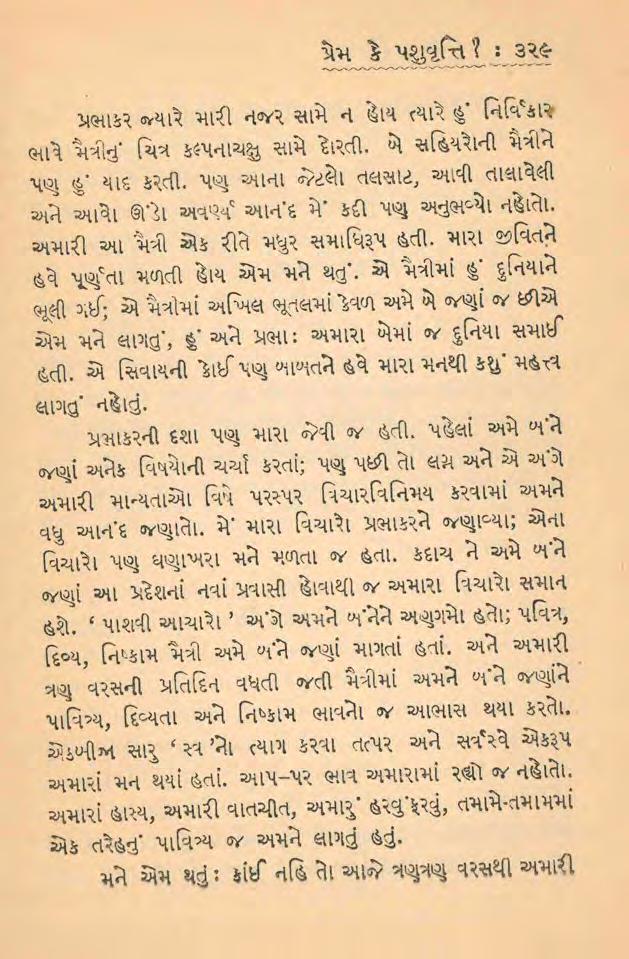 પ્રેમ કે પશુવૃત્તિ? : ૩૨૯
પ્રભાકર જ્યારે મારી નજર સામે ન હોય ત્યારે હું નિર્વિકાર
ભાવે મૈત્રીનું ચિત્ર કલ્પનાચક્ષુ સામે દોરતી. બે સહિયરોની મૈત્રીને
પણ હું યાદ કરતી. પણ આના જેટલો તલસાટ, આવી તાલાવેલી
અને આવો ઊંડો અવર્ણ્ય આનંદ મેં કદી પણ અનુભવ્યો નહોતો.
અમારી આ મૈત્રી એક રીતે મધુર સમાધિરૂપ હતી. મારા જીવિતને
હવે પૂર્ણતા મળતી હોય એમ મને થતું. એ મૈત્રીમાં હું દુનિયાને
ભૂલી ગઈ; એ મૈત્રીમાં અખિલ ભૂતલમાં કેવળ અમે બે જણાં જ છીએ
એમ મને લાગતું, હું અને પ્રભા: અમારા બેમાં જ દુનિયા સમાઈ
હતી. એ સિવાયની કોઈ પણ બાબતને હવે મારા મનથી કશું મહત્ત્વ
લાગતું નહોતું.
પ્રભાકરની દશા પણ મારા જેવી જ હતી. પહેલાં અમે બંને
જણાં અનેક વિષયોની ચર્ચા કરતાં; પણ પછી તો લગ્ન અને એ અંગે
અમારી માન્યતાઓ વિષે પરસ્પર વિચારવિનિમય કરવામાં અમને
વધુ આનંદ જણાતો. મેં મારા વિચારો પ્રભાકરને જણાવ્યા; એના
વિચારો પણ ઘણાખરા મને મળતા જ હતા. કદાચ ને અમે બંને
જણાં આ પ્રદેશનાં નવાં પ્રવાસી હોવાથી જ અમારા વિચારો સમાન
હશે. ‘ પાશવી આચારો ’ અંગે અમને બંનેને અણગમો હતો; પવિત્ર,
દિવ્ય, નિષ્કામ મૈત્રી અમે બંને જણાં માગતાં હતાં. અને અમારી
ત્રણ વરસની પ્રતિદિન વધતી જતી મૈત્રીમાં અમને બંને જણાંને
પાવિત્ર્ય, દિવ્યતા અને નિષ્કામ ભાવનો જ આભાસ થયા કરતો.
એકબીજા સારુ ‘ સ્વ ’નો ત્યાગ કરવા તત્પર અને સર્વસ્વે એકરૂપ
અમારાં મન થયાં હતાં. આપ–પર ભાવ અમારામાં રહ્યો જ નહોતો.
અમારાં હાસ્ય, અમારી વાતચીત, અમારું હરવુંફરવું, તમામે-તમામમાં
એક તરેહનું પાવિત્ર્ય જ અમને લાગતું હતું.
મને એમ થતું: કાંઈ નહિ તો આજે ત્રણત્રણ વરસથી અમારી